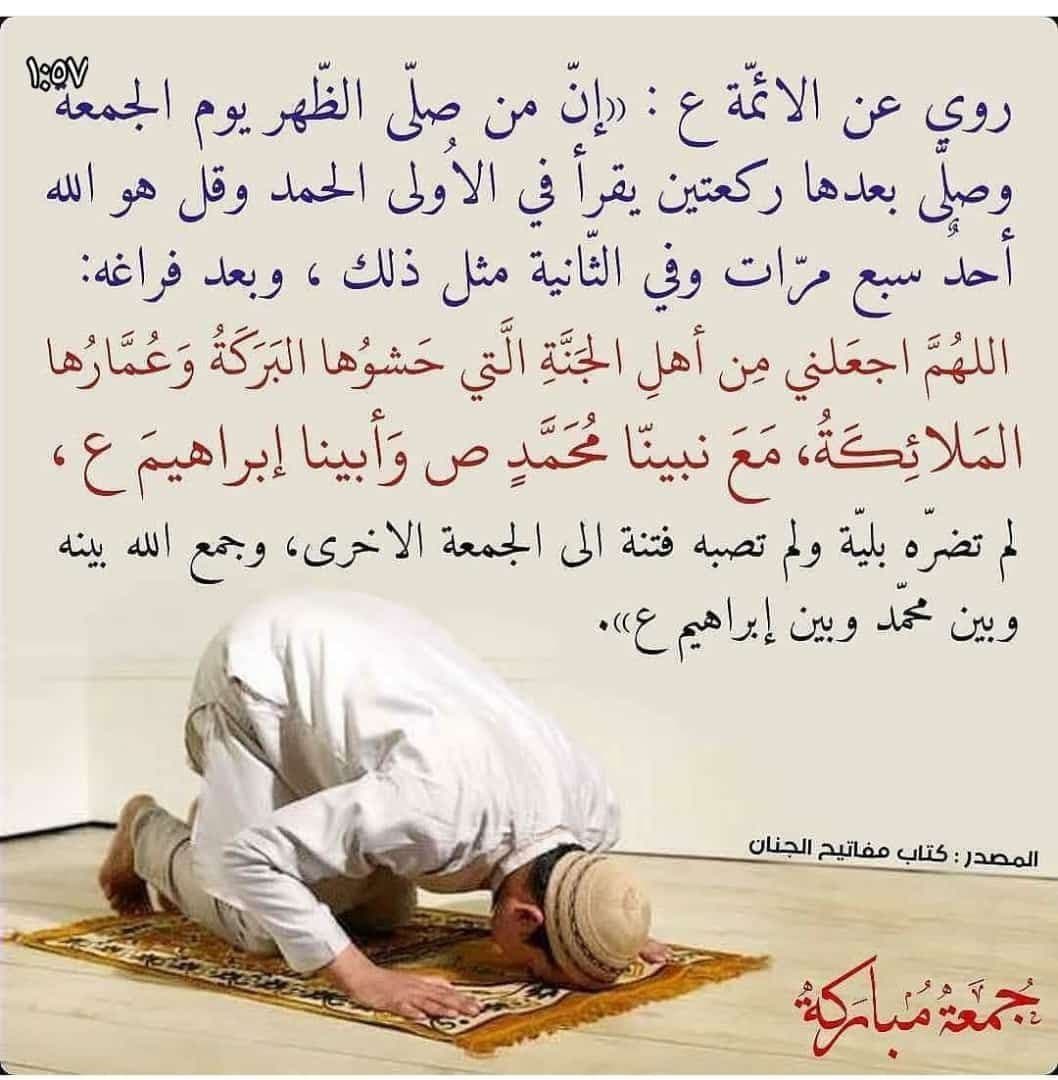 ١:٥٧
روي عن الائمّة ع : ((إنّ من صلّى الظّهر يوم الجمعة
وصلّى بعدها ركعتين يقرأ في الأُولى الحمد وقل هو الله
أحدٌ سبع مرّات وفي الثّانية مثل ذلك ، وبعد فراغه:
اللهُمَّ اجعَلني مِن أهلِ الجَنَّةِ الَّتي حَشوُها البَرَكَةُ وَعُمَّارُها
المَلائِكَةُ، مَعَ نبينّا مُحَمَّدٍ ص وَأبينا إبراهيمَ ع ،
لم تضرّه بليّة ولم تصبه فتنة الى الجمعة الاخرى، وجمع الله بينه
وبين محمّد وبين إبراهيم ع)).
المصدر : كتاب مفاتيح الجنان
جُمعَةٌ مُبارَكةٌ